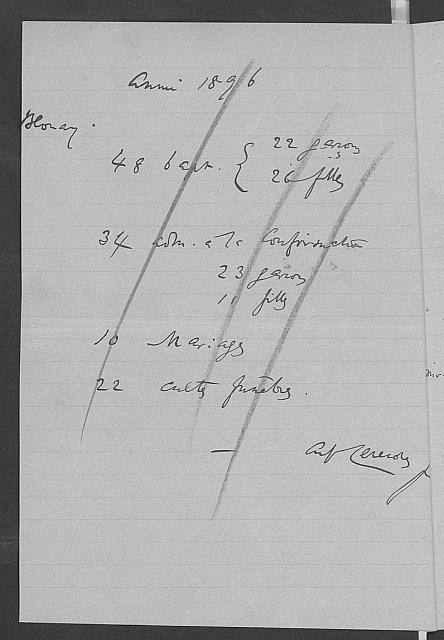 Année 1896
Blonay.
48 bapt. { 22 garçons
26 filles
34 adm. à la Confirmation
23 garçons
11 filles
10 Mariages
22 cultes funèbres.
—
Ceresole